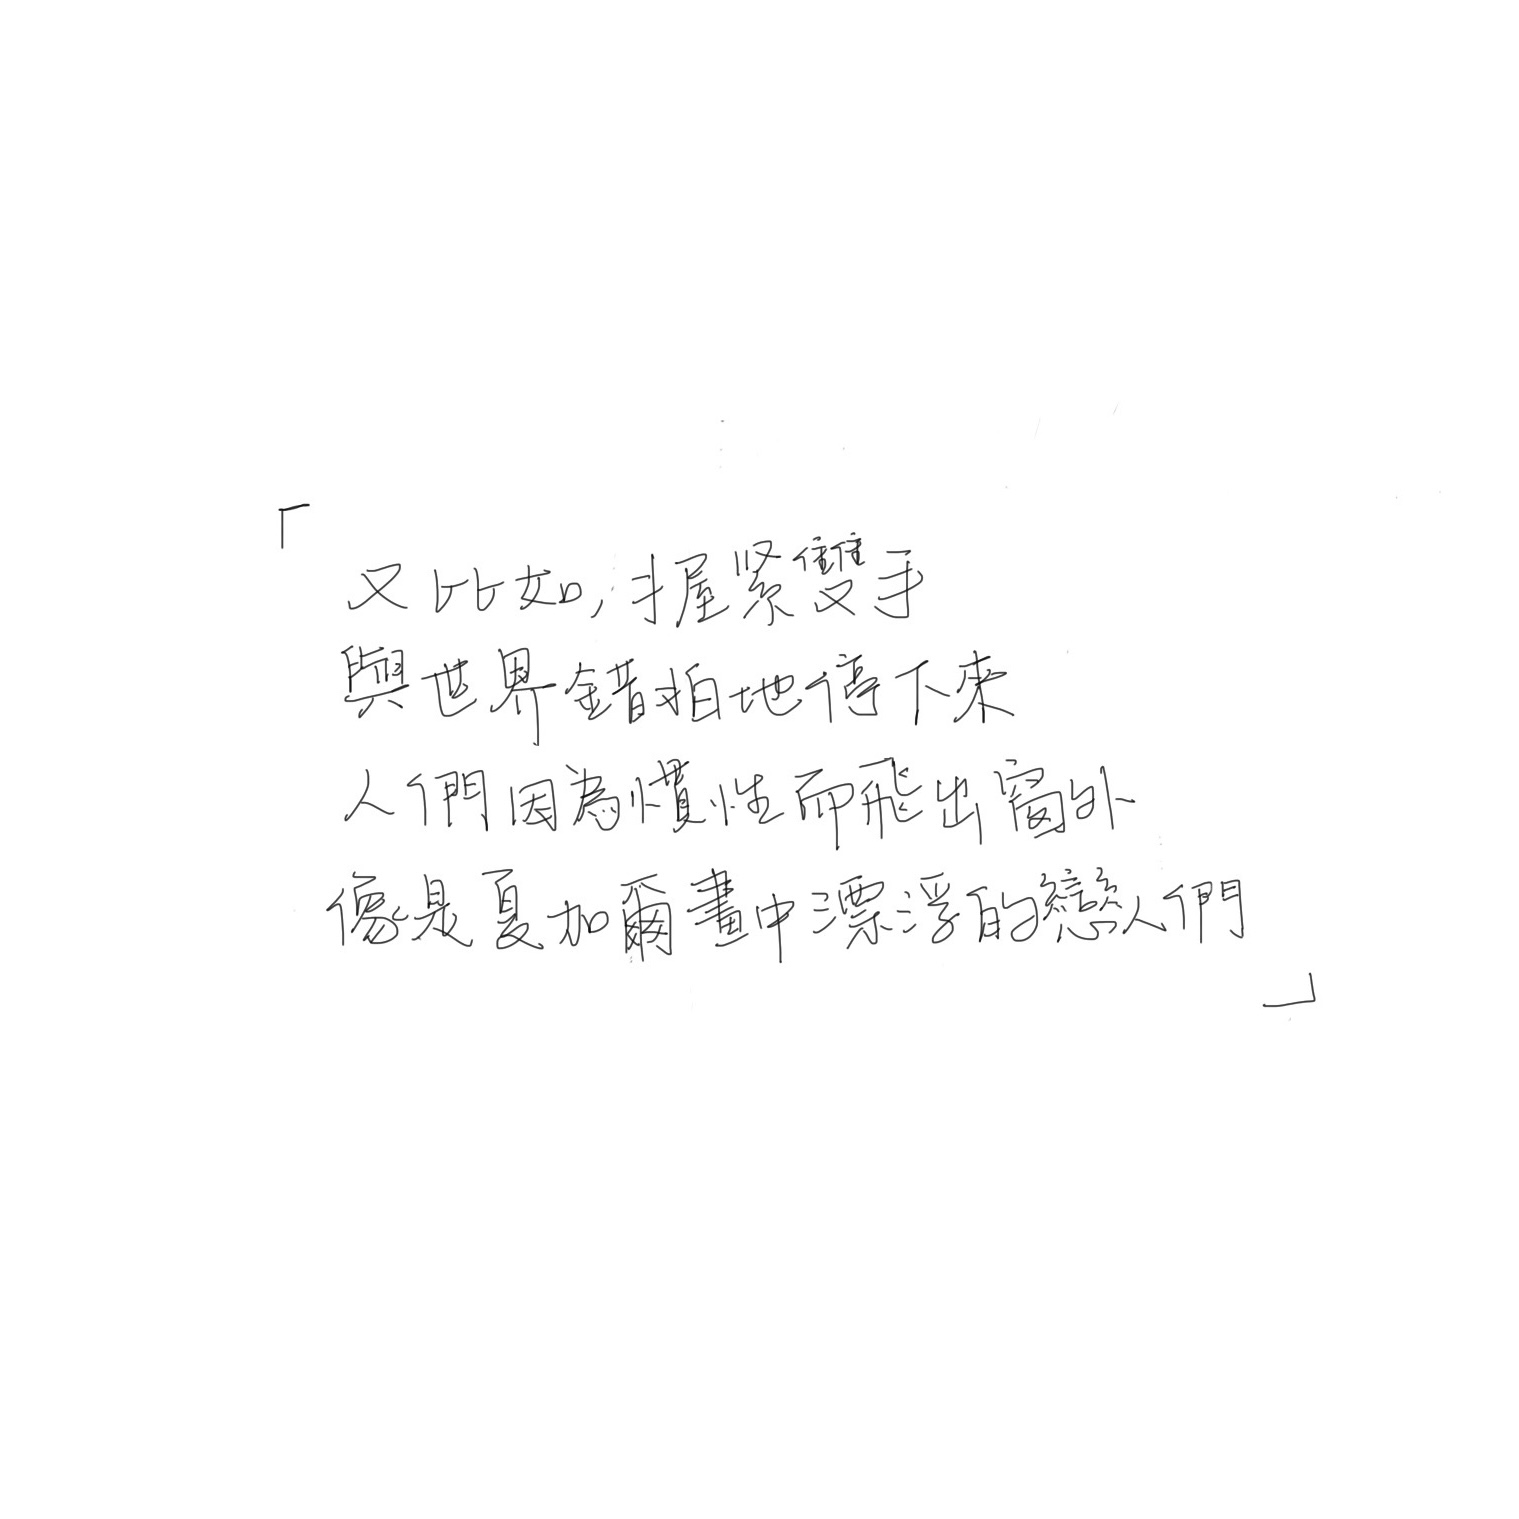 「
又比如,握緊雙手
與世界錯拍地停下來
人們因為慣性而飛出窗外
像是夏加爾畫中漂浮的戀人們
」